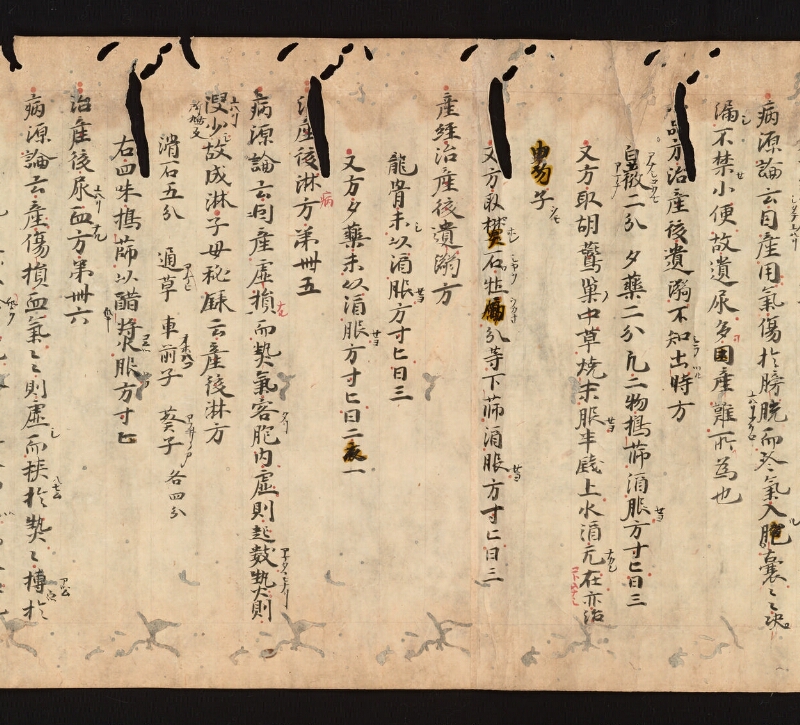 病源論云因産用氣傷於膀胱而冷氣入胞囊〻決
漏不禁小便故遺尿多因産難所爲也
品方治産後遺溺不知出時方
白薇二分 夕藥二分 凡二物搗篩酒服方寸匕日三
又方取胡鷰巢中草燒末服半錢上水酒亢在亦治
男子
又方取礬石牡蠣分等下篩酒服方寸匕日三
産経治産後遺溺方
龍骨末以酒服方寸匕日三
又方夕藥末以酒服方寸匕日二夜一
治産後淋方第卌五
病源論云因産虛損而熱氣客胞内虛則起數熱則
溲少故成淋 子母秘錄云産後淋方
滑石五分 通草 車前子 葵子 各四分
右四味搗篩以醋漿水服方寸匕
治産後尿血方第卌六
病源論云産傷損血氣〻〻則虛而挾於熱〻搏於